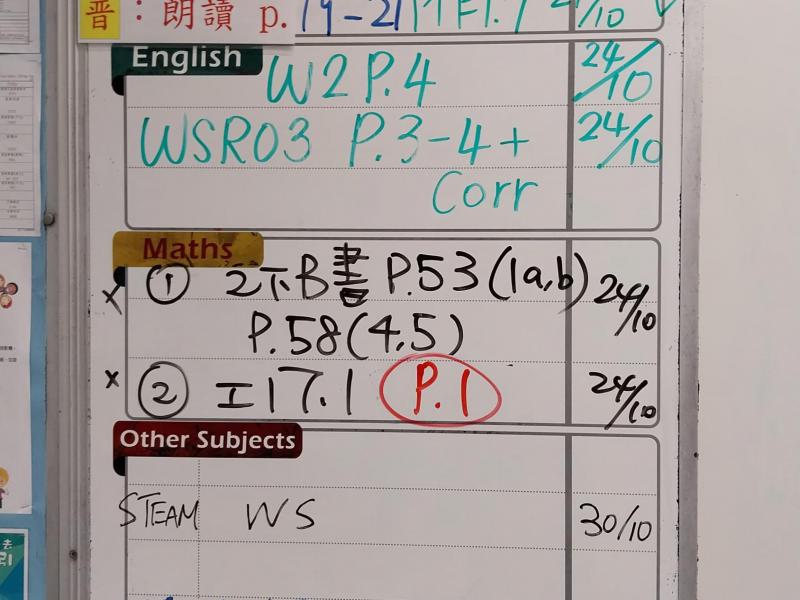 普：朗讀 p. 19-21
English
W2 P.4 24/10
WSR03 P.3-4+ 24/10
Corr
Maths
① 2下B書 P.53(1a,b) 24/10
P.58(4,5)
② 工17.1 P.1 24/10
Other Subjects
STEAM WS 30/10